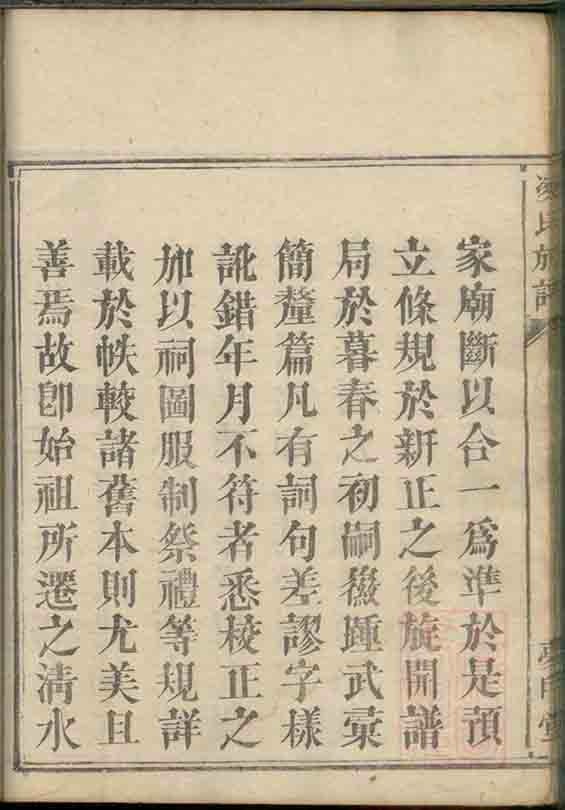 家廟斷以合一爲準於是預
立條規於新正之後旋開譜
局於暮春之初嗣徽踵武彙
簡釐篇凡有詞句差謬字樣
訛錯年月不符者悉校正之
加以祠圖服制祭禮等規詳
載於帙較諸舊本則尤美且
善焉故卽始祖所遷之淸水
氏族譜